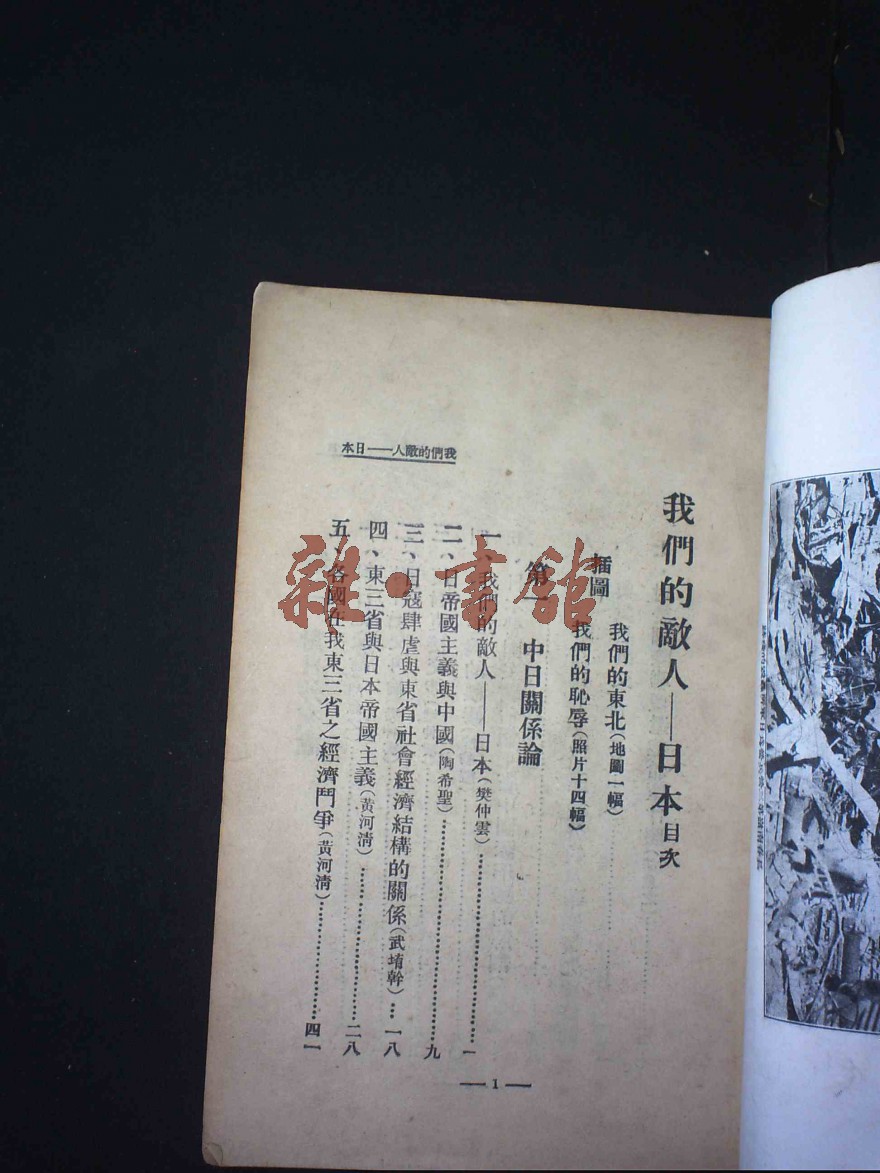 我們的敵人——日本目次
插圖
我們的東北(地圖一幅)
我們的恥辱(照片十四幅)
第一 中日關係論
一、我們的敵人——日本(樊仲雲)…………一
二、日帝國主義與中國(陶希聖)…………九
三、日寇肆虐與東省社會經濟結構的關係(武堉幹)…一八
四、東三省與日本帝國主義(黃河清)…………二八
五、各國在我東三省之經濟鬥爭(黃河清)…………四一
本日——人敵的們我
— 1 —
雜·書館